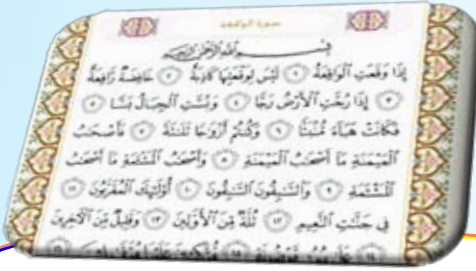 سورة الواقعة
بِسْمِ اللَّهِ الرَّحْمَٰنِ الرَّحِيمِ
إِذَا وَقَعَتِ ٱلْوَاقِعَةُ ١ لَيْسَ لِوَقْعَتِهَا كَاذِبَةٌ ٢ خَافِضَةٌ رَّافِعَةٌ
٣ إِذَا رُجَّتِ ٱلْأَرْضُ رَجًّا ٤ وَبُسَّتِ ٱلْجِبَالُ بَسًّا ٥
فَكَانَتْ هَبَآءً مُّنۢبَثًّا ٦ وَكُنتُمْ أَزْوَٰجًا ثَلَٰثَةً ٧ فَأَصْحَٰبُ
ٱلْمَيْمَنَةِ مَآ أَصْحَٰبُ ٱلْمَيْمَنَةِ ٨ وَأَصْحَٰبُ ٱلْمَشْـَٔمَةِ مَآ أَصْحَٰبُ
ٱلْمَشْـَٔمَةِ ٩ وَٱلسَّٰبِقُونَ ٱلسَّٰبِقُونَ ١٠ أُو۟لَٰٓئِكَ ٱلْمُقَرَّبُونَ ١١
فِى جَنَّٰتِ ٱلنَّعِيمِ ١٢ ثُلَّةٌ مِّنَ ٱلْأَوَّلِينَ ١٣ وَقَلِيلٌ مِّنَ ٱلْـَٔاخِرِينَ
١٤ عَلَىٰ سُرُرٍ مَّوْضُونَةٍ ١٥